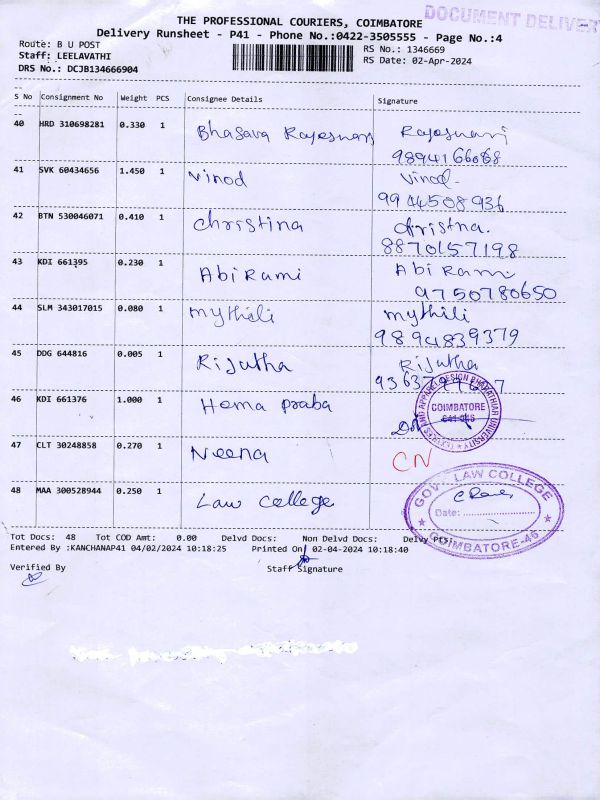 THE PROFESSIONAL COURIERS, COIMBATORE
DOCUMENT DELIVER
Delivery Runsheet - P41 - Phone No.:0422-3505555 - Page No.:4
Route: B U POST
RS No.: 1346669
Staff: LEELAVATHI
RS Date: 02-Apr-2024
DRS No.: DCJB134666904
S No Consignment No Weight PCS Consignee Details Signature
40 HRD 310698281 0.330 1 Bhasava Rajeswari Rajeswari
9894166068
41 SVK 60434656 1.450 1 Vinod Vinod
9944508936
42 BTN 530046071 0.410 1 Christina Christna.
8870157198
43 KDI 661395 0.230 1 Abi Rami Abi Rami
9750780650
44 SLM 343017015 0.080 1 Mythili mythili
9894839379
45 DDG 644816 0.005 1 Rijutha Rijutha
46 KDI 661376 1.000 1 Hema praba
AND APPAREL DESIGN BHARATHIAR UNIVERSITY
COIMBATORE
47 CLT 30248858 0.270 1 Neena CN
48 MAA 300528944 0.250 1 Law college
GOVT LAW COLLEGE
Date:
COIMBATORE-46
Tot Docs: 48 Tot COD Amt: 0.00 Delvd Docs: Non Delvd Docs: Delvy Pts:
Entered By :KANCHANAP41 04/02/2024 10:18:25 Printed On 02-04-2024 10:18:40
Verified By Staff Signature